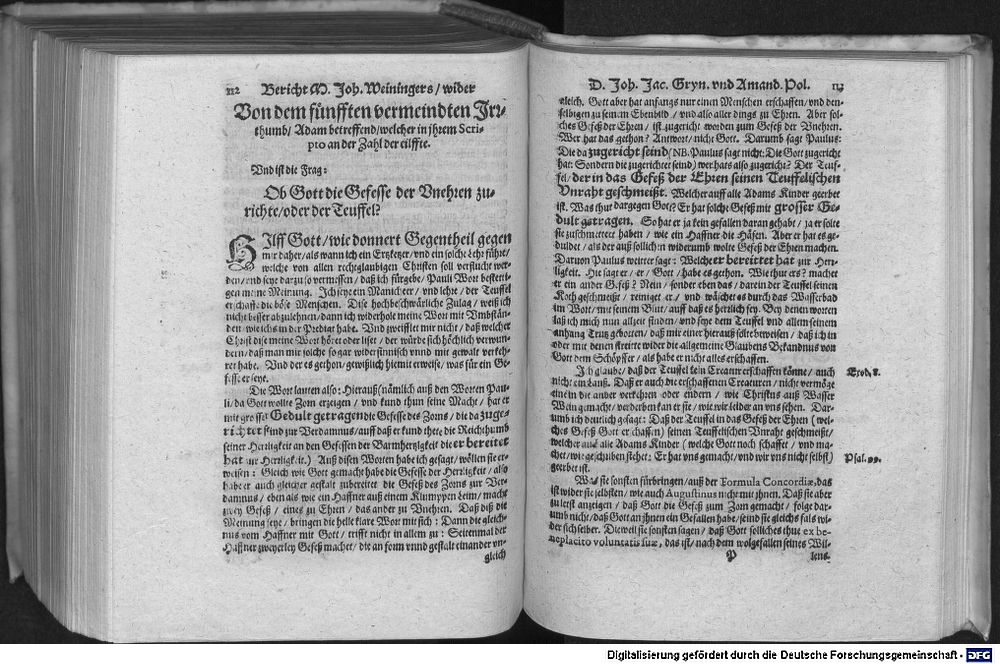 212 Bericht M. Joh. Weiningers / wider
Von dem fünfften vermeindten Irr-
thumb / Adam betreffend / welcher in ihrem Scri-
pto an der Zahl der eilffte.
Vnd ist die Frag:
Ob Gott die Gefesse der Vnehren zu-
richte / oder der Teuffel?
HIlff Gott / wie donnert Gegentheil gegen
mir daher / als wann ich ein Ertzketzer / vnd ein solche Lehr führt /
welche von allen rechtglaubigen Christen soll verflucht wer-
den / vnd seye darzu so vermessen / daß ich fürgebe / Pauli Wort bestetti-
gen meine Meinung. Ich seye ein Manicheer / vnd lehre / der Teuffel
erschaffe die böse Menschen. Dise hochbeschwärliche Zulag / weiß ich
nicht besser abzulehnen / dann ich widerhole meine Wort mit Vmbstän-
den / wie ichs in der Predigt habe. Vnd zweifflet mir nicht / daß welcher
Christ dise meine Wort höret oder liset / der würde sich höchlich verwun-
dern / daß man mir solche so gar widersinnisch vnnd mit gewalt verkeh-
ret habe. Vnd der es gethon / gewißlich hiemit erweise / was für ein Ge-
fesse er seye.
Die Wort lauten also: Hierauß (nämlich auß den Worten Pau-
li / da Gott wollte Zorn erzeigen / vnd kund thun seine Macht / hat er
mit grosser Gedult getragen die Gefesse des Zorns / die da zuge-
richtet sind zur Verdamnus / auff daß er kund thete die Reichthumb
seiner Herrligkeit an den Gefessen der Barmhertzigkeit die er bereitet
hat zur Herrligkeit.) Auß disen Worten habe ich gesagt / wöllen sie er-
weisen: Gleich wie Gott gemacht habe die Gefesse der Herrligkeit / also
habe er auch gleicher gestalt zubereitet die Gefeß des Zorns zur Ver-
damnus / eben als wie ein Haffner auß einem Klumppen Leim / machs
zwey Gefeß / eines zu Ehren / das ander zu Vnehren. Daß diß die
Meinung seye / bringen die helle klare Wort mit sich: Dann die gleich-
nus vom Haffner mit Gott / trifft nicht in allem zu: Seitenmal der
Haffner zweyerley Gefeß machet / die an form vnnd gestalt einander vn-
gleich
D. Joh. Jac. Gryn. vnd Amand. Pol. 113
gleich. Gott aber hat anfangs nur einen Menschen erschaffen / vnd den-
selbigen zu seinem Ebenbild / vnd also aller dings zu Ehren. Aber sol-
ches Gefeß der Ehren / ist zugericht worden zum Gefeß der Vnehren.
Wer hat das gethon? Antwort / nicht Gott. Darumb sagt Paulus:
Die da zugericht seind (NB. Paulus sagt nicht: Die Gott zugericht
hat: Sondern die zugerichtet seind) wer hats also zugericht? Der Teuf-
fel / der in das Gefeß der Ehren seinen Teuffelischen
Vnraht geschmeißt. Welcher auff alle Adams Kinder geerbet
ist. Was thut dargegen Gott? Er hat solche Gefeß mit grosser Ge-
dult getragen. So hat er ja kein gefallen daran gehabt / ja er solte
sie zuschmettert haben / wie ein Haffner die Häfen. Aber er hat es ge-
dultet / als der auß sollichen widerumb wolte Gefeß der Ehren machen.
Daruon Paulus weitter sagt: Welche er bereittet hat zur Herr-
ligkeit. Hie sagt er / er / Gott / habe es gethon. Wie thut ers? machet
er ein ander Gefeß? Nein / sonder eben das / darein der Teuffel seinen
Koth geschmeißt / reiniget er / vnd wäschet es durch das Wasserbad
im Wort / mit seinem Blut / auff daß es herrlich sey. Bey denen worten
laß ich mich nun allzeit finden / vnd seye dem Teuffel vnd allem seinem
anhang Trutz gebotten / daß mir einer hierauß solte beweisen / daß ich in
oder mit denen streitte wider die allgemeine Glaubens Bekandnus von
Gott dem Schöpffer / als habe er nicht alles erschaffen.
Ich glaube / daß der Teuffel kein Creatur erschaffen könne / auch
nicht ein Lauß. Daß er auch die erschaffenen Creaturen / nicht vermöge
eine in die ander verkehren oder endern / wie Christus auß Wasser
Wein gemacht / verderben kan er sie / wie wir leider an vns sehen. Dar-
umb ich deutlich gesagt: Daß der Teuffel in das Gefeß der Ehren (wel-
ches Gefeß Gott erschaffen) seinen Teuffelischen Vnraht geschmeißt /
welcher auff alle Adams Kinder (welche Gott noch schaffet / vnd ma-
chet / wie geschriben stehet: Er hat vns gemacht / vnd wir vns nicht selbst)
geerbet ist.
Exod. 8.
Psal. 99.
Was sie sonsten fürbringen / auß der Formula Concordiæ, das
ist wider sie selbsten / wie auch Augustinus nicht mit ihnen. Daß sie aber
zu letst anzeigen / daß Gott die Gefeß zum Zorn gemacht / folge dar-
umb nicht / daß Gott an ihnen ein Gefallen habe / seind sie gleichs fals wi-
der sich selber. Dieweil sie sonsten sagen / daß Gott solliches thue ex be-
neplacito voluntatis suæ, das ist / nach dem wolgefallen seines Wil-
P lens.
Digitalisierung gefördert durch die Deutsche Forschungsgemeinschaft - DFG